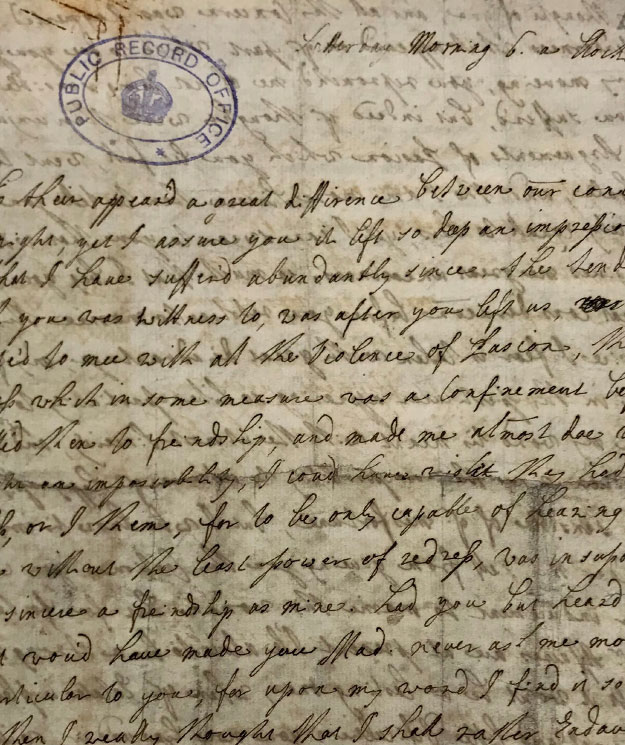 PUBLIC RECORD OFFICE
Morning 6. a Clock
their appeard a great difference between our con
right yet I assure you it left so deep an impressio
hat I have sufferd abundantly since the tend
you was wittness to, was after you left us
to mee with all the Violence of Pasion, th
which in some measure was a Confinement be
then to freindship, and made me almost doe
an imposibility, I coud have the
or I them, for to be only capable of hearing
without the least power of redress, was insupo
sincere a freindship as mine. had you but heard
woud have made you Mad. never ask me mo
rticular to you, for upon my word I find it so
then I really thought that I shall rather Endav